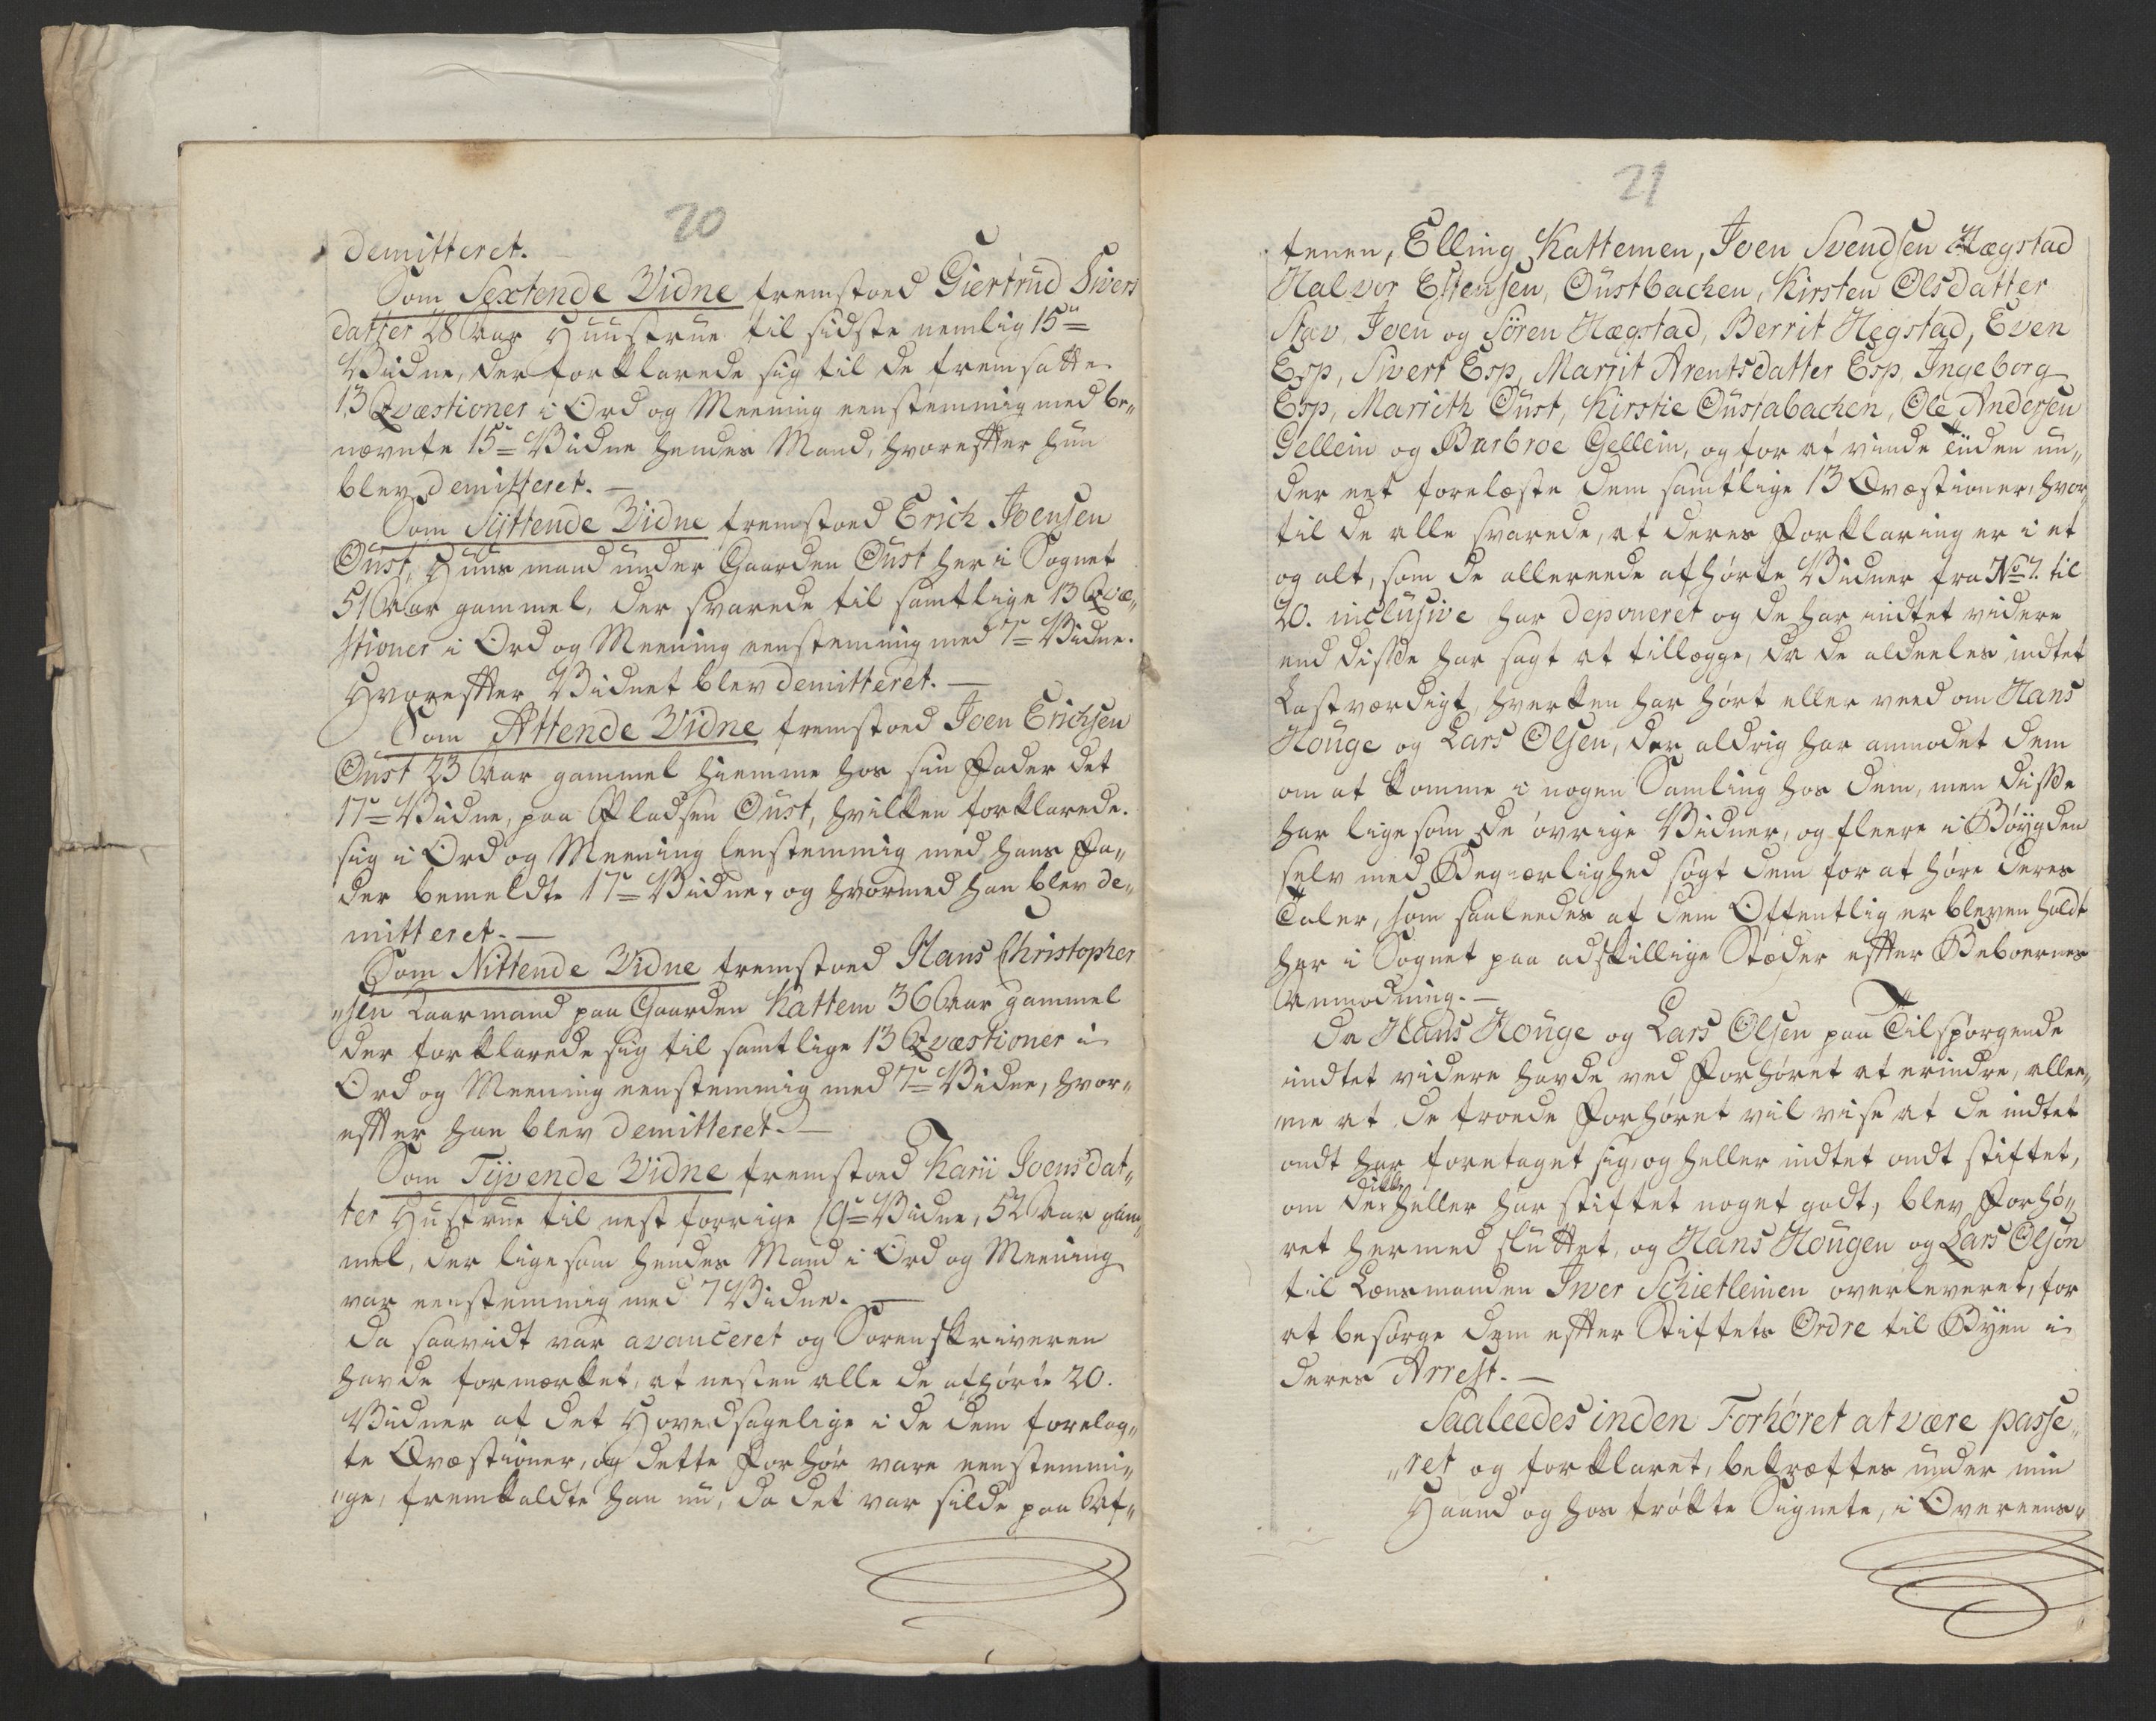 20
demitteret.
Som Sextende Vidne fremstoed Giertrud Sivers
datter 28 Aar Huustrue til sidste nemlig 15de
Vidne, der forklarede sig til de fremsatte
13 Qvæstioner i Ord og Meening eenstemmig med be„
nævnte 15de Vidne hendes Mand, hvorefter hun
blev demitteret. —
Som Syttende Vidne fremstoed Erich Joensen
Oust, Huusmand under Gaarden Oust her i Sognet
51 Aar gammel, der svarede til samtlige 13 Qvæ„
stioner i Ord og Meening eenstemmig med 7de Vidne.
Hvorefter Vidnet blev demitteret. —
Som Attende Vidne fremstoed Joen Erichsen
Oust 23 Aar gammel hiemme hos sin Fader det
17de Vidne, paa Pladsen Oust, hvilken forklarede.
sig i Ord og Meening eenstemmig med hans Fa„
der bemeldte 17de Vidne, og hvormed han blev de„
mitteret. —
Som Nittende Vidne fremstoed Hans Christopher
„sen Laarmand paa Gaarden Kattem 36 Aar gammel
der forklarede sig til samtlige 13 Qvæstioner i
Ord og Meening eenstemmig med 7de Vidne, hvor„
efter han blev demitteret. —
Som Tyvende Vidne fremstoed Karii Joensdat„
ter Hustrue til nest forrige 19de Vidne, 52 Aar gam„
mel, der ligesom hendes Mand i Ord og Meening
var eenstemmig med 7 Vidne. —
Da saavidt var avanceret og Sorenskriveren
havde formærket, at nesten alle de afhørte 20.
Vidner af det Hovedsagelige i de dem forelag„
te Qvæstioner, og dette Forhør vare eenstemmi„
„ge, fremkaldte han nu, da det var silde paa Af„
21
tenen, Elling Kattemen, Joen Svendsen Hægstad
Halvor Estensen, Oustbachen, Kirsten Olsdatter
Stav, Joen og Sören Hægstad, Berrit Hegstad, Even
Esp, Sivert Esp, Marrit Arentsdatter Esp, Ingeborg
Esp, Marrith Oust, Kirstie Oustabachen, Ole Andersen
Gellein og Barbroe Gellein, og for at vinde Tiiden un„
der eet forelæste dem samtlige 13 Qvæstioner, hvor
til de alle svarede, at deres Forklaring er i et
og alt, som de allereede afhørte Vidner fra No 7. til
20. inclusive har deponeret og de har indtet videre
end disse har sagt at tillægge, da de aldeeles indtet
Lastværdigt, hverken har hørt eller veed om Hans
Houge og Lars Olsen, der aldrig har anmodet dem
om at komme i nogen Samling hos dem, men disse
har ligesom de øvrige Vidner, og fleere i Bøygden
selv med Begiærlighed søgt dem for at høre deres
Taler, som saaleedes af dem Offentlig er bleven holdt
her i Sognet paa adskillige Stæder efter Beboernes
Anmodning. —
Da Hans Houge og Lars Olsen paa Tilspørgende
indtet videre havde ved Forhøret at erindre, allee„
ene at de troede Forhøret vil vise at de indtet
ondt har foretaget sig, og heller indtet ondt stiftet,
om de ikke heller har stiftet noget godt, blev Forhø„
ret hermed sluttet, og Hans Hougen og Lars Olson
til Lænsmanden Iver Schietleinen overleveret, for
at besørge dem efter Stiftets Ordre til Byen i
deres Arrest. —
Saaleedes inden Forhøret at være passe„
„ret og forklaret, bekræftes under min
Haand og hos trøkte Signete, i Overeens„